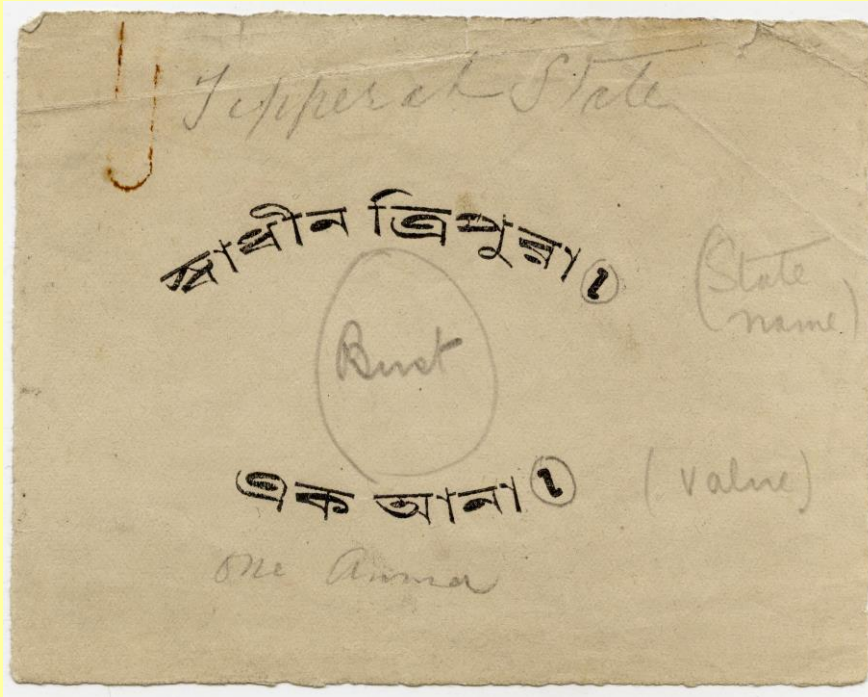 Tipperah State
স্বাধীন ত্রিপুরা ১
(State
name)
Bust
এক আনা ১
(value)
one Anna